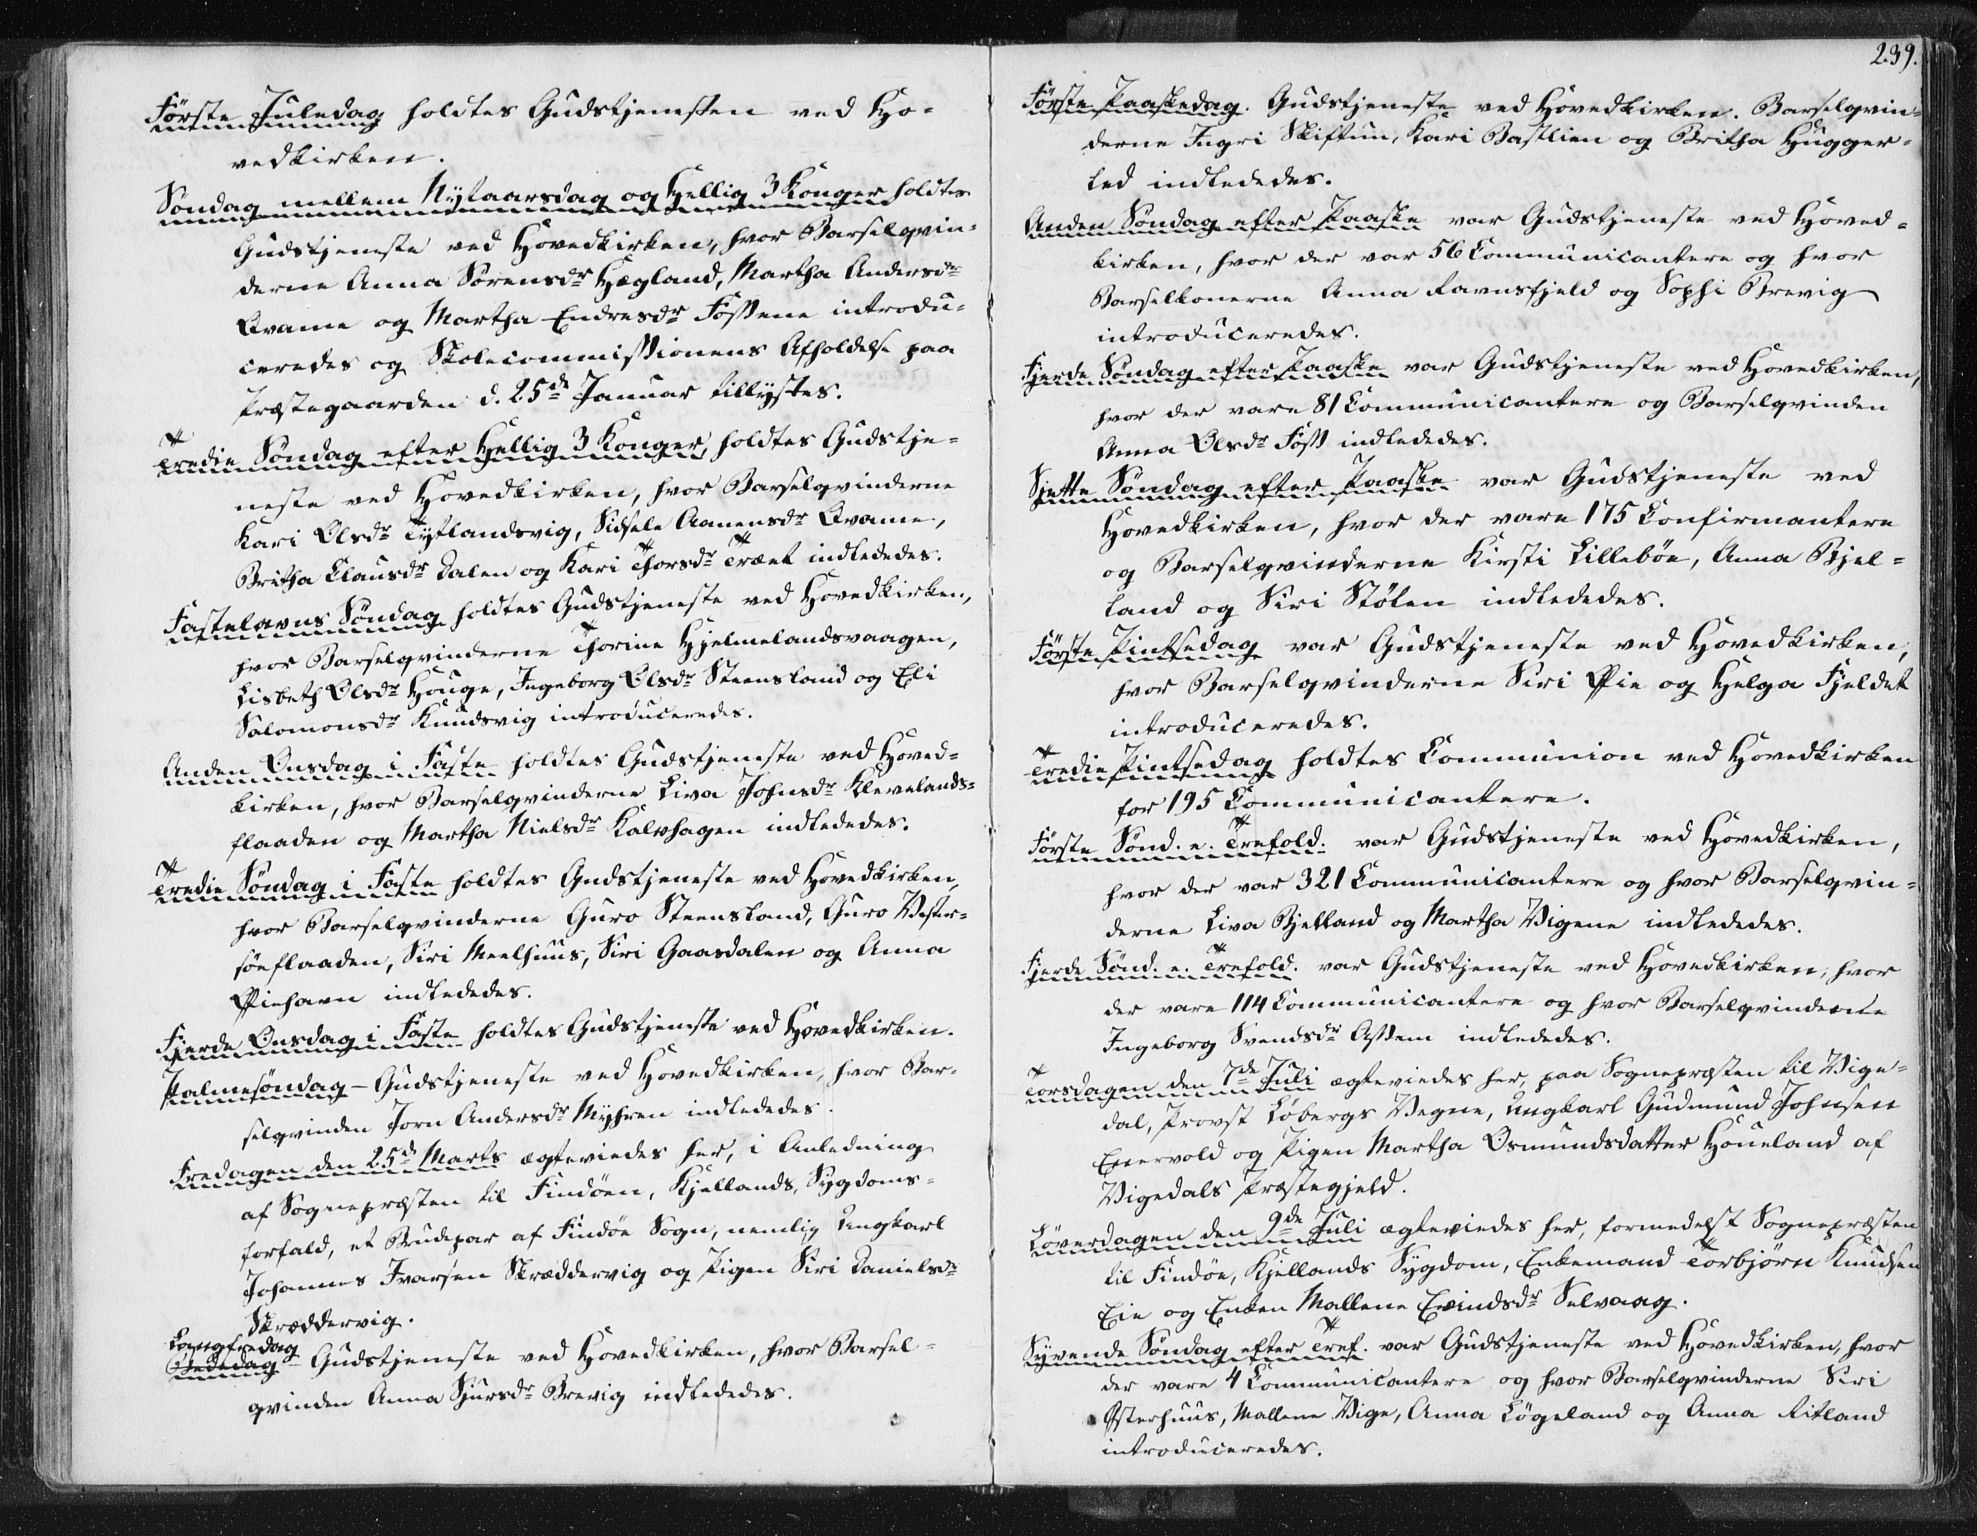 Første Juledag holdtes Gudstjenesten ved Ho-
vedkirken.
Søndag mellem Nytaarsdag og Hellig 3 Konger holdtes
Gudstjeneste ved Hovedkirken, hvor Barselqvin-
derne Anna Sørensdr Hægland, Martha Andersdr
Qvame og Martha Endresdr Fossene introdu-
ceredes og Skolecommissionens Afholdelse paa
Præstegaarden d. 25de Januar tillystes.
Tredie Søndag efter Hellig 3 Konger, holdtes Gudstje-
neste ved Hovedkirken, hvor Barselqvinderne
Kari Olsdr Tytlandsvig, Sidsele Aamensdr Qvame,
Britha Clausdr Dalen og Kari Thorsdr Træet indlededes.
Fastelavns Søndag holdtes Gudstjeneste ved Hovedkirken,
hvor Barselqvinderne Thorine Hjelmelandsvaagen,
Lisbeth Olsdr Houge, Ingeborg Olsdr Steensland og Eli
Salomonsdr Knudsvig introduceredes.
Anden Onsdag i Faste holdtes Gudstjeneste ved Hoved-
kirken, hvor Barselqvinderne Liva Johnsdr Klevelands-
flaaden og Martha Nielsdr Kalvhagen indlededes.
Tredie Søndag i Faste holdtes Gudstjeneste ved Hovedkirken,
hvor Barselqvinderne Guro Steensland, Guro Vester-
søeflaaden, Siri Meelhuus, Siri Gaasdalen og Anna
Piehavn indlededes.
Fjerde Onsdag i Faste holdtes Gudstjeneste ved Hovedkirken.
Palmesøndag – Gudstjeneste ved Hovedkirken, hvor Bar-
selqvinden Jorn Andersdr Myhren indlededes.
Fredagen den 25de Marts ægteviedes her, i Anledning
af Sognepræsten til Findøen, Kjellands, Sygdoms-
forfald, et Brudepar af Findøe Sogn, nemlig Ungkarl
Johannes Ivarsen Skræddervig og Pigen Siri Danielsdr
Skræddervig.
Langfredag
Bededag – Gudstjeneste ved Hovedkirken, hvor Barsel-
qvinden Anna Sjursdr Brevig indlededes.
239.
Første Paaskedag. Gudstjeneste ved Hovedkirken. Barselqvin-
derne Ingri Skiftun, Kari Bastlien og Britha Hugger-
led indlededes.
Anden Søndag efter Paaske var Gudstjeneste ved Hoved-
kirken, hvor der var 56 Communicantere og hvor
Barselkonerne Anna Ravnsfjeld og Sophi Brevig
introduceredes.
Fjerde Søndag efter Paaske var Gudstjeneste ved Hovedkirken,
hvor der vare 81 Communicantere og Barselqvinden
Anna Olsdr Foss indlededes.
Sjette Søndag efter Paaske var Gudstjeneste ved
Hovedkirken, hvor der vare 175 Confirmantere
og Barselqvinderne Kirsti Lillebøe, Anna Bjel-
land og Siri Stølen indlededes.
Første Pintsedag var Gudstjeneste ved Hovedkirken,
hvor Barselqvinderne Siri Pie og Helga Fjeldet
introduceredes.
Tredie Pintsedag holdtes Communion ved Hovedkirken
for 195 Communicantere.
Første Sønd. e. Trefold. var Gudstjeneste ved Hovedkirken,
hvor der var 321 Communicantere og hvor Barselqvin-
derne Liva Bjelland og Martha Vigene indlededes.
Fjerde Sønd. e. Trefold. var Gudstjeneste ved Hovedkirken, hvor
der vare 114 Communicantere og hvor Barselqvinderne
Ingeborg Svendsdr Assem indlededes.
Torsdagen den 7de Juli ægteviedes her, paa Sognepræsten til Vige-
dal, Provst Løbergs Vegne, Ungkarl Gudmund Johnsen
Enervold og Pigen Martha Osmundsdatter Houeland af
Vigedals Præstegjeld.
Løverdagen den 9de Juli ægteviedes her, formedelst Sognepræsten
til Findøe, Kjellands Sygdom, Enkemand Torbjørn Knudsen
Eie og Enken Mallene Evindsdr Selvaag.
Syvende Søndag efter Tref. var Gudstjeneste ved Hovedkirken, hvor
der vare 4 Communicantere og hvor Barselqvinderne Siri
Østerhuus, Mallene Vige, Anna Løgeland og Anna Ritland
introduceredes.